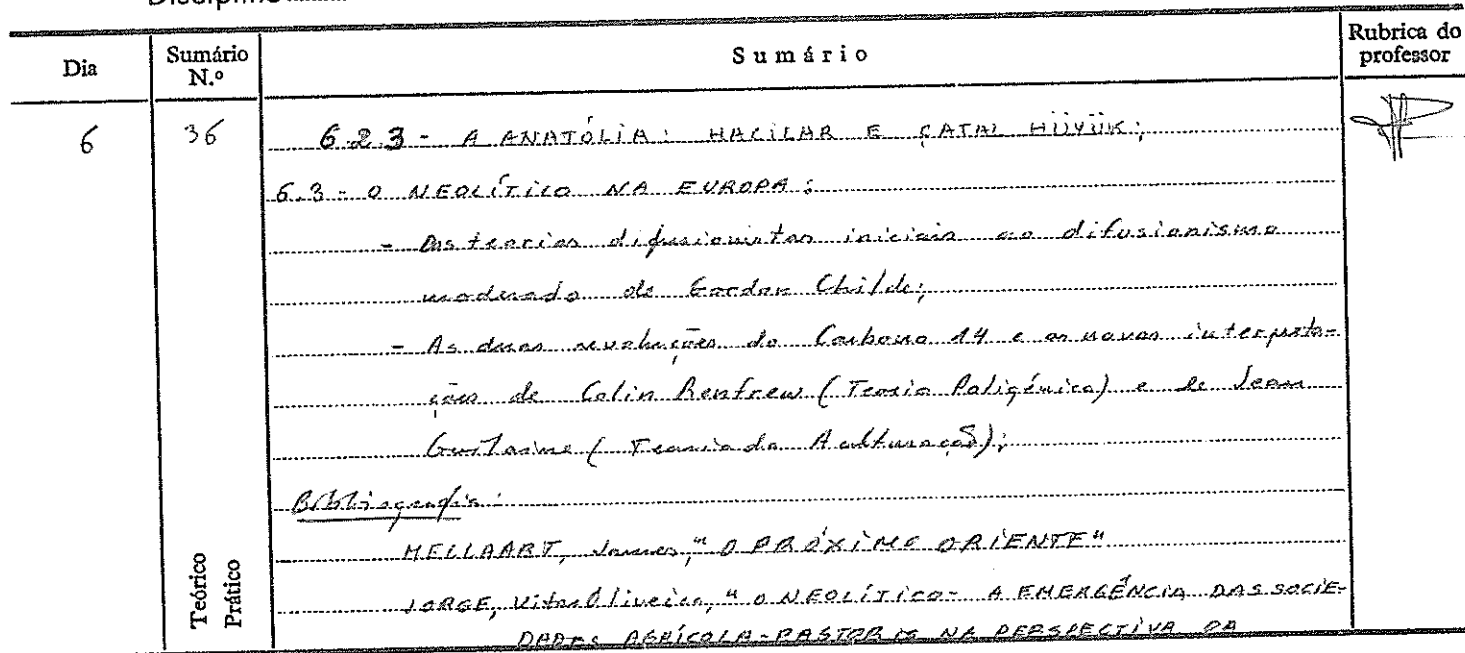 Disciplina
Dia
Sumário N.º
Sumário
Rubrica do professor
6
36
6.2.3 - A ANATÓLIA: HACILAR E ÇATAL HÜYÜK;
6.3 - O NEOLÍTICO NA EUROPA:
- Das teorias difusionistas iniciais ao difusionismo
moderado de Gordon Childe;
- As duas revoluções do Carbono 14 e as novas interpreta-
ções de Colin Renfrew (Teoria Poligénica) e de Jean
Guilaine (Teoria da Aculturação);
Bibliografia:
MELLAART, James, "O PRÓXIMO ORIENTE"
JORGE, Vítor Oliveira, "O NEOLÍTICO - A EMERGÊNCIA DAS SOCIE-
DADES AGRÍCOLA-PASTORIS NA PERSPECTIVA DA
Teórico
Prático